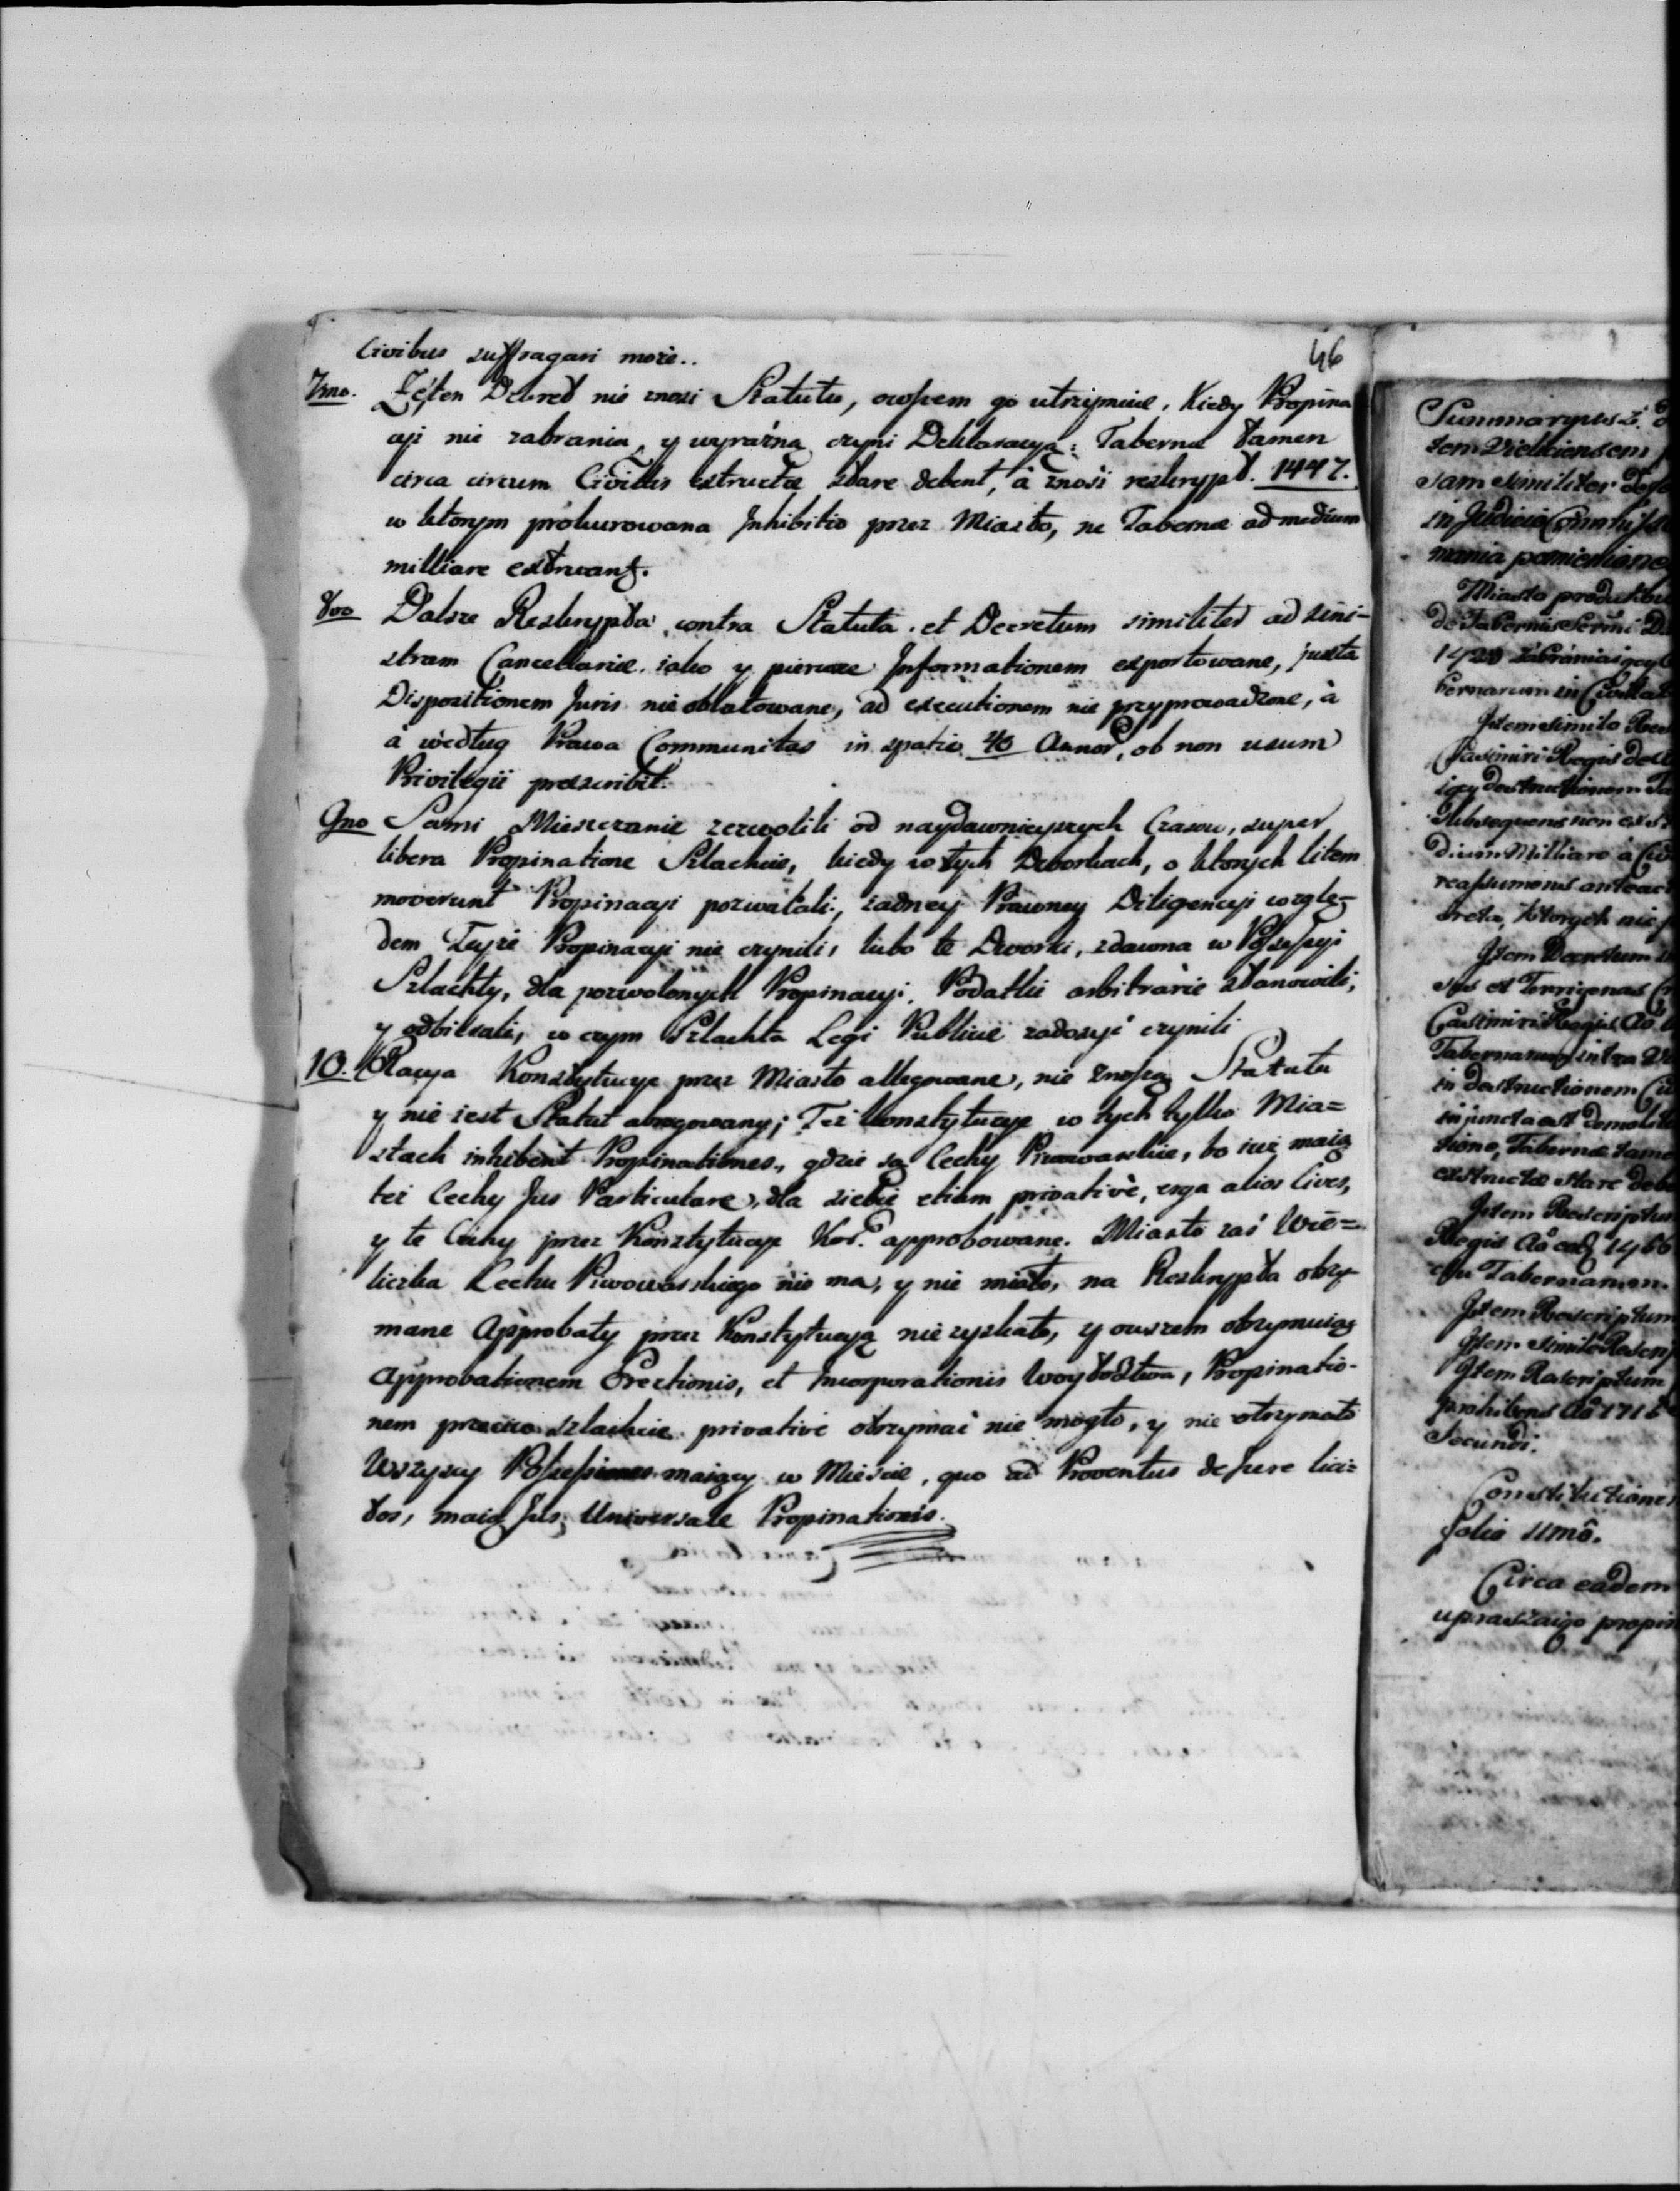 46
Civibus suffragari może..
7mo. Że ten Dekret nie znosi Statutu, owszem go utrzymuie. Kiedy Propina
cyi nie zabrania, y wyraźną czyni Deklaracyą: Tabernæ tamen
circa circum Civitatis extructæ stare debent, à znosi reskrypt. 1447.
w ktorym prokurowana Inhibitio przez Miasto, ne Tabernæ ad medium
milliare extruant.
8vo Dalsze Reskrypta contra Statuta et Decretum similiter ad sini-
stram Cancellariæ iako y pierwsze Informationem exportowane, juxta
Dispositionem Juris nieoblatowane, ad executionem nie przyprowadzone, à
à według Prawa Communitas in spatio 40 Annor, ob non usum
Privilegii præscribit.
9no Sami Mieszczanie zezwolili od naydawnieyszych Czasow, super
libera Propinatione Szlachcie, kiedy w tych Dworkach, o ktorych litem
moverunt Propinacyi pozwalali, żadney Prawney Diligencyi wzglę-
dem Teyże Propinacyi nie czynili, lubo te Dworki, zdawna w Possessyi
Szlachty, dla pozwolonych Propinacyi, Podatki arbitrarie stanowili,
y odbierali, w czym Szlachta Legi Publicæ zadosyć czynili
10. Racya Konstytucye przez Miasto allegowane, nie znoszą Statutu
y nie iest Statut abrogowany; Też konstytucye w tych tylko Mia=
stach inhibent Propinationes, gdzie są Cechy Piwowarskie, bo iuż maią
też Cechy Jus Particulare, dla siebie etiam privativè, erga alios Cives,
y te Cechy przez Konstytucye Kor. approbowane. Miasto zaś Wie=
liczka Cechu Piwowarskiego nie ma, y nie miało, na Reskrypta otrzy-
mane Approbaty przez Konstytucyą nie zyskało, y owszem otrzymuiąc
Approbationem Erectionis, et Incorporationis Woytostwa, Propinatio-
nem przeciw szlachcie privativè otrzymać nie mogło, y nie otrzymało
Wszyscy Possessiones maiący w Mieście, quo ad Proventus de Jure lici=
tos, maią Jus Universale Propinationis.
Summaryusz
tem Vieliciensem
sam similiter
in Judicio
mania pomienione
Miasto
de Tabernis Sermi
1420 zabraniaiący
bernarum in
Item simile
Casimiri Regis
iący destructionem
Subsequens non
dium Milliare a
reassumens
creta, ktorych nie
Item Decretum
et Terrigenas
Casimiri Regis
Tabernarum intra
in destructionem
injuncta est
sione, Tabernæ
extructæ stare
Item Rescriptum
Regis Ao eod 1456
Tabernarum
Item Rescriptum
Item simile
Item Rescriptum
prohibens Ao
Secundi.
Constitutiones
folio 11mo.
Circa eadem
upraszaiąc